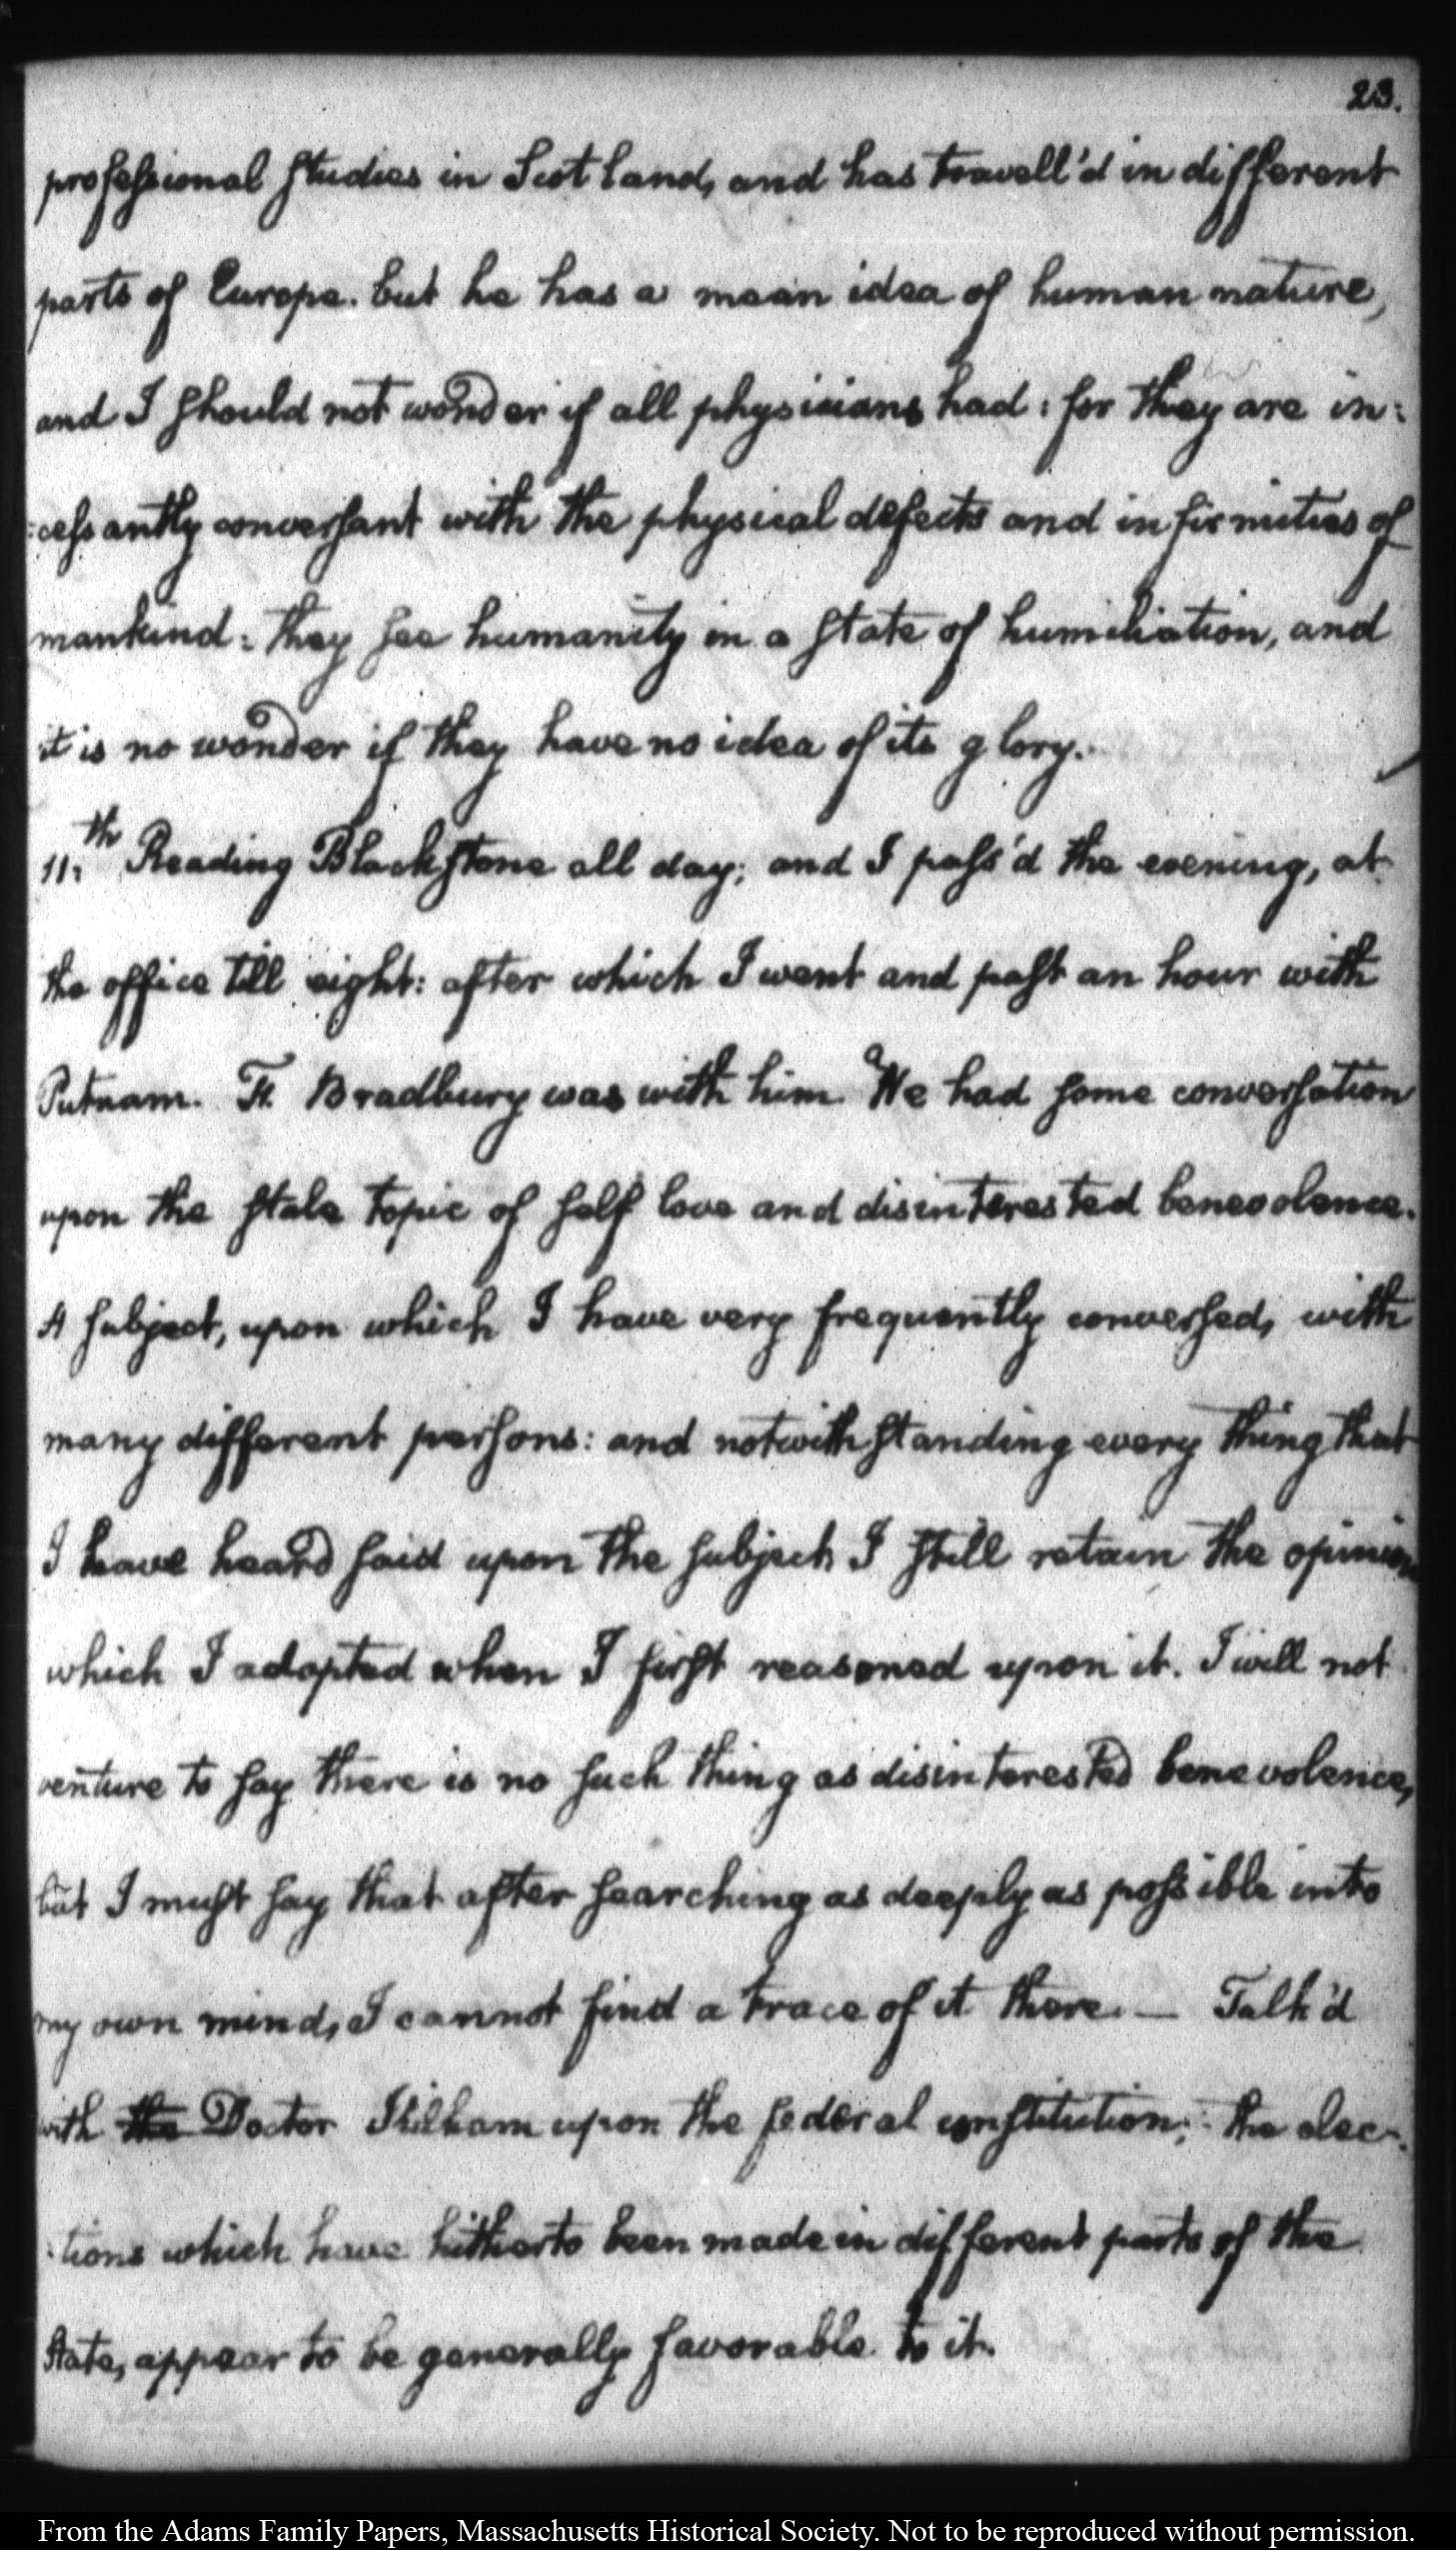 23.
professional studies in Scotland, and has travell'd in different
parts of Europe. but he has a mean idea of human nature,
and I should not wonder if all physicians had: for they are in:
:cessantly conversant with the physical defects and infirmities of
mankind: they see humanity in a state of humiliation, and
it is no wonder if they have no idea of its glory.
11.th Reading Blackstone all day; and I pass'd the evening, at
the office till eight: after which I went and past an hour with
Putnam. Fr. Bradbury was with him. We had some conversation
upon the stale topic of self love and disinterested benevolence.
A subject, upon which I have very frequently conversed, with
many different persons: and notwithstanding every thing that
I have heard said upon the subject, I still retain the opinion
which I adopted when I first reasoned upon it. I will not
venture to say there is no such thing as disinterested benevolence,
but I must say that after searching as deeply as possible into
my own mind, I cannot find a trace of it there. — Talk'd
with the Doctor Kilham upon the federal constitution; the elec:
:tions which have hitherto been made in different parts of the
State, appear to be generally favorable to it.
From the Adams Family Papers, Massachusetts Historical Society. Not to be reproduced without permission.